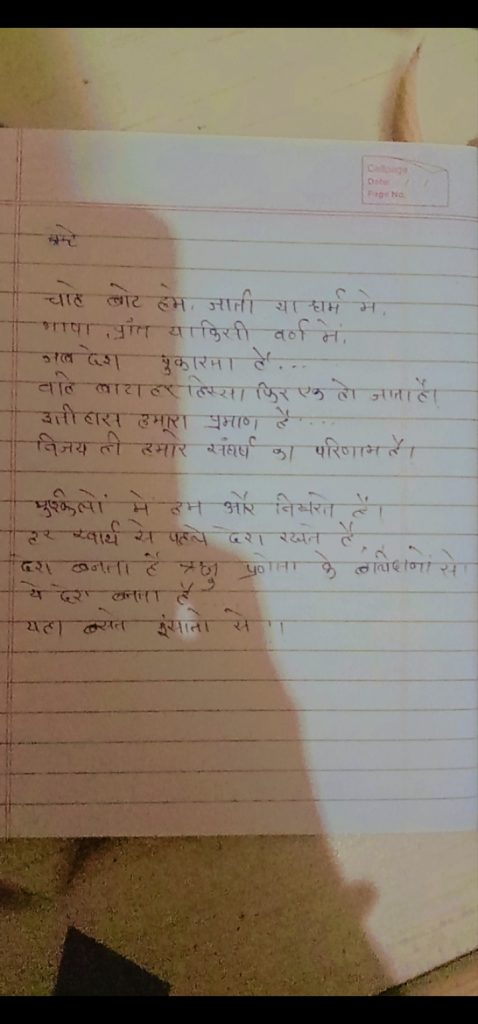 Callpage
Date / /
Page No.
चाहे बांटे हमे, जाती या धर्म मे,
भाषा, प्रांत या किसी वर्ग में,
जब देश पुकारता है...
चाहे बाटा हर हिस्सा फिर एक हो जाता है।
इतीहास हमारा प्रमाण है....
विजय ही हमारे संघर्ष का परिणाम है।
मुश्किलों में हम और निखरते है।
हर स्वार्थ से पहले देश रखते है,
देश बनता है के से।
ये देश बनता है
यहा बसते इंसानो से।।